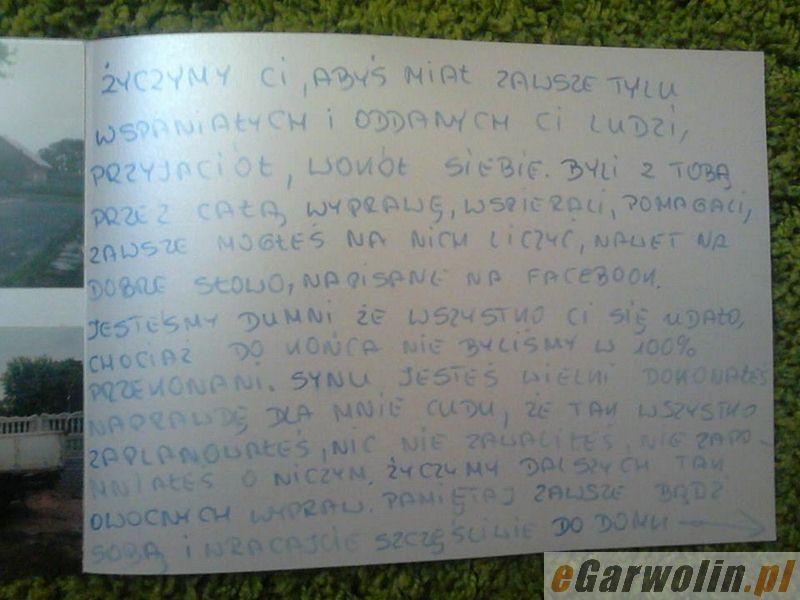 ŻYCZYMY CI, ABYŚ MIAŁ ZAWSZE TYLU
WSPANIAŁYCH I ODDANYCH CI LUDZI,
PRZYJACIÓŁ, WOKÓŁ SIEBIE. BYLI Z TOBĄ
PRZEZ CAŁĄ WYPRAWĘ, WSPIERALI, POMAGALI,
ZAWSZE MOGŁEŚ NA NICH LICZYĆ, NAWET NA
DOBRE SŁOWO, NAPISANE NA FACEBOOK.
JESTEŚMY DUMNI ŻE WSZYSTKO CI SIĘ UDAŁO,
CHOCIAŻ DO KOŃCA NIE BYLIŚMY W 100%
PRZEKONANI. SYNU JESTEŚ WIELKI DOKONAŁEŚ
NAPRAWDĘ DLA MNIE CUDU, ŻE TAK WSZYSTKO
ZAPLANOWAŁEŚ, NIC NIE ZAWALIŁEŚ, NIE ZAPO-
MNIAŁEŚ O NICZYM. ŻYCZYMY DALSZYCH TAK
OWOCNYCH WYPRAW. PAMIĘTAJ ZAWSZE BĄDŹ
SOBĄ I WRACAJCIE SZCZĘŚLIWIE DO DOMU →
eGarwolin.pl